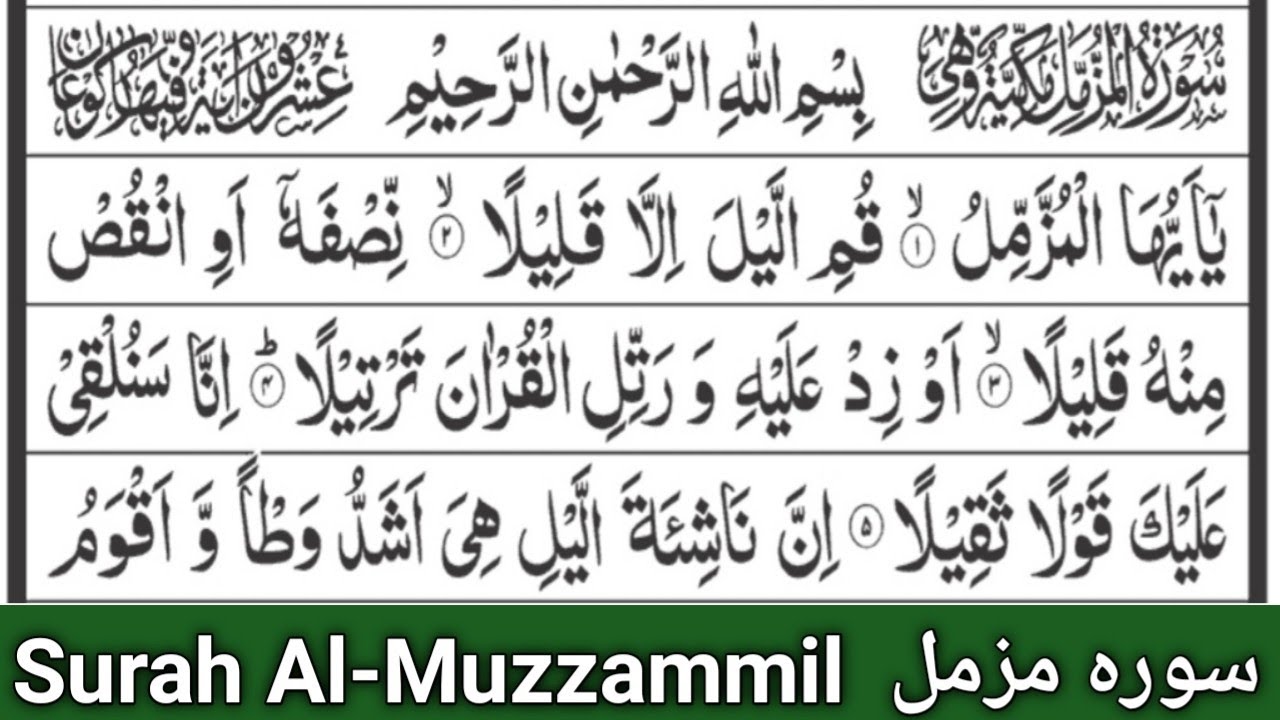 سُوْرَةُ الْمُزَّمِّلِ مَكِّيَّةٌ وَّهِيَ بِسْمِ اللهِ الرَّحْمٰنِ الرَّحِيْمِ عِشْرُوْنَ اٰيَةً وَّفِيْهَا رُكُوْعَانِ
يٰۤاَيُّهَا الْمُزَّمِّلُ ۙ﴿۱﴾ قُمِ الَّيْلَ اِلَّا قَلِيْلًا ۙ﴿۲﴾ نِّصْفَهٗۤ اَوِ انْقُصْ
مِنْهُ قَلِيْلًا ۙ﴿۳﴾ اَوْ زِدْ عَلَيْهِ وَ رَتِّلِ الْقُرْاٰنَ تَرْتِيْلًا ؕ﴿۴﴾ اِنَّا سَنُلْقِيْ
عَلَيْكَ قَوْلًا ثَقِيْلًا ﴿۵﴾ اِنَّ نَاشِئَةَ الَّيْلِ هِيَ اَشَدُّ وَطْاً وَّ اَقْوَمُ
Surah Al-Muzzammil سورہ مزمل